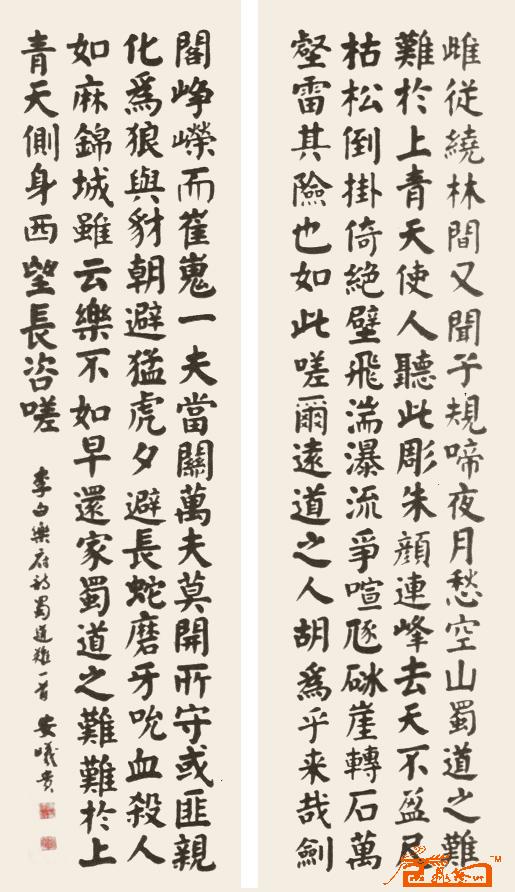 雌從繞林間又聞子規啼夜月愁空山蜀道之難
難於上青天使人聽此彫朱顔連峰去天不盈尺
枯松倒掛倚絕壁飛湍瀑流爭喧豗砯崖轉石萬
壑雷其險也如此嗟爾遠道之人胡為乎来哉劍
閣崢嶸而崔嵬一夫當關萬夫莫開所守或匪親
化為狼與豺朝避猛虎夕避長蛇磨牙吮血殺人
如麻錦城雖云樂不如早還家蜀道之難難於上
青天側身西望長咨嗟
李白樂府詩蜀道難一首 安曦貴